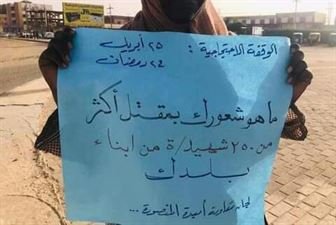 الوقفة الاحتجاجية : ٢٥ أبريل
٢٤ رمضان
ما هو شعورك بمقتل أكثر
من ٢٥٠ شهيد/ة من ابناء
بلدك
لجان مقاومة أمبدة المنصورة ...